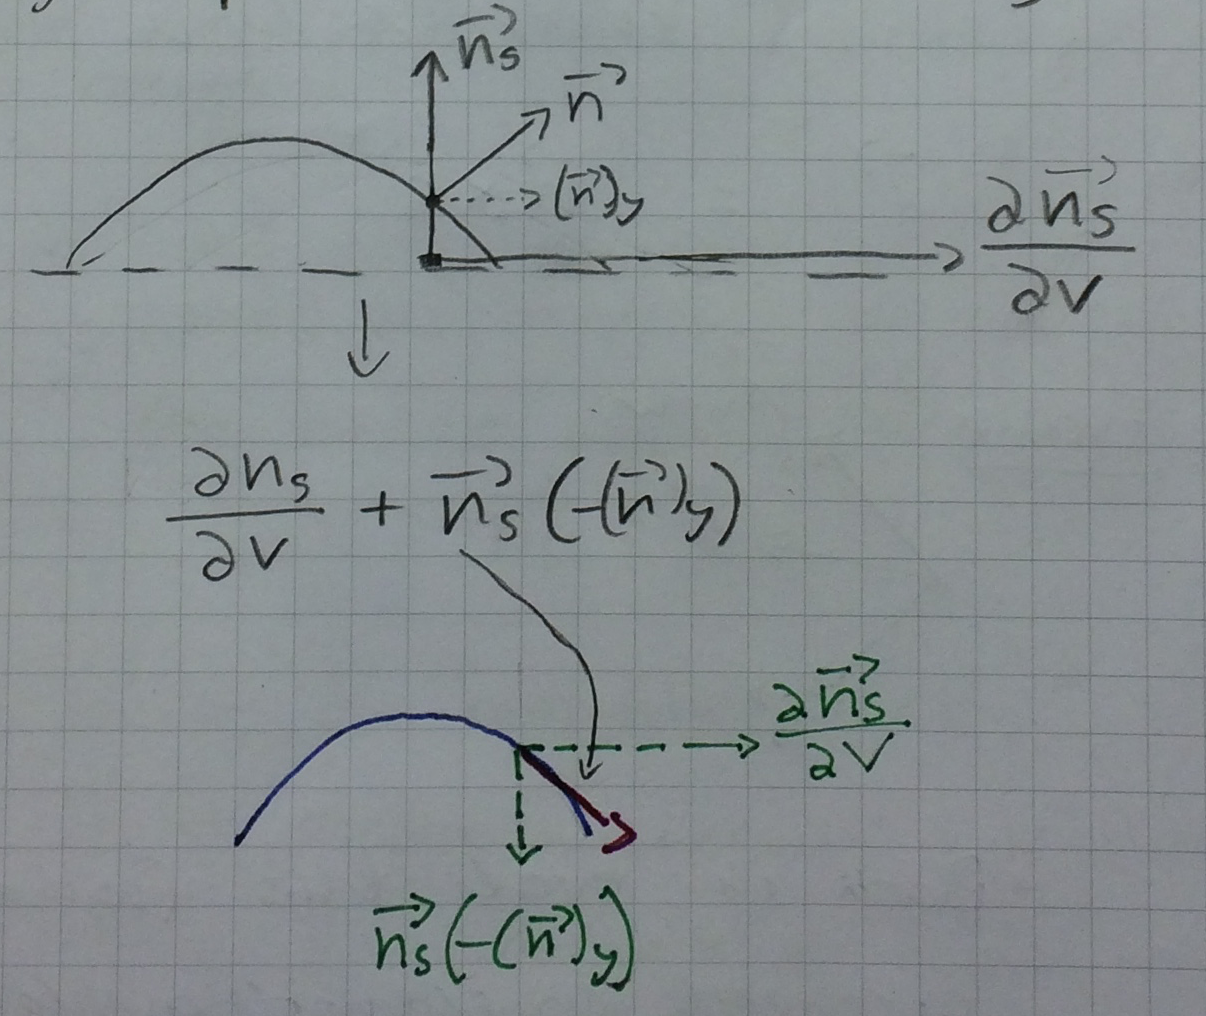 n⃗ₛ
n⃗
(n⃗)y
∂n⃗ₛ/∂v
∂nₛ/∂v + n⃗ₛ(-(n⃗)y)
∂n⃗ₛ/∂v
n⃗ₛ(-(n⃗)y)